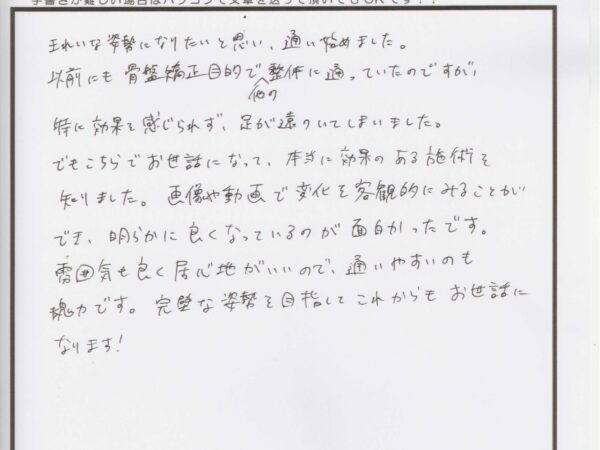 手書きが難しい場合はパソコンで文章を送って頂いてもOKです！！
きれいな姿勢になりたいと思い、通い始めました。
以前にも骨盤矯正目的で他の整体に通っていたのですが、
特に効果を感じられず、足が遠のいてしまいました。
でもこちらでお世話になって、本当に効果のある施術を
知りました。画像や動画で変化を客観的にみることが
でき、明らかに良くなっているのが面白かったです。
雰囲気も良く居心地がいいので、通いやすいのも
魅力です。完璧な姿勢を目指してこれからもお世話に
なります!